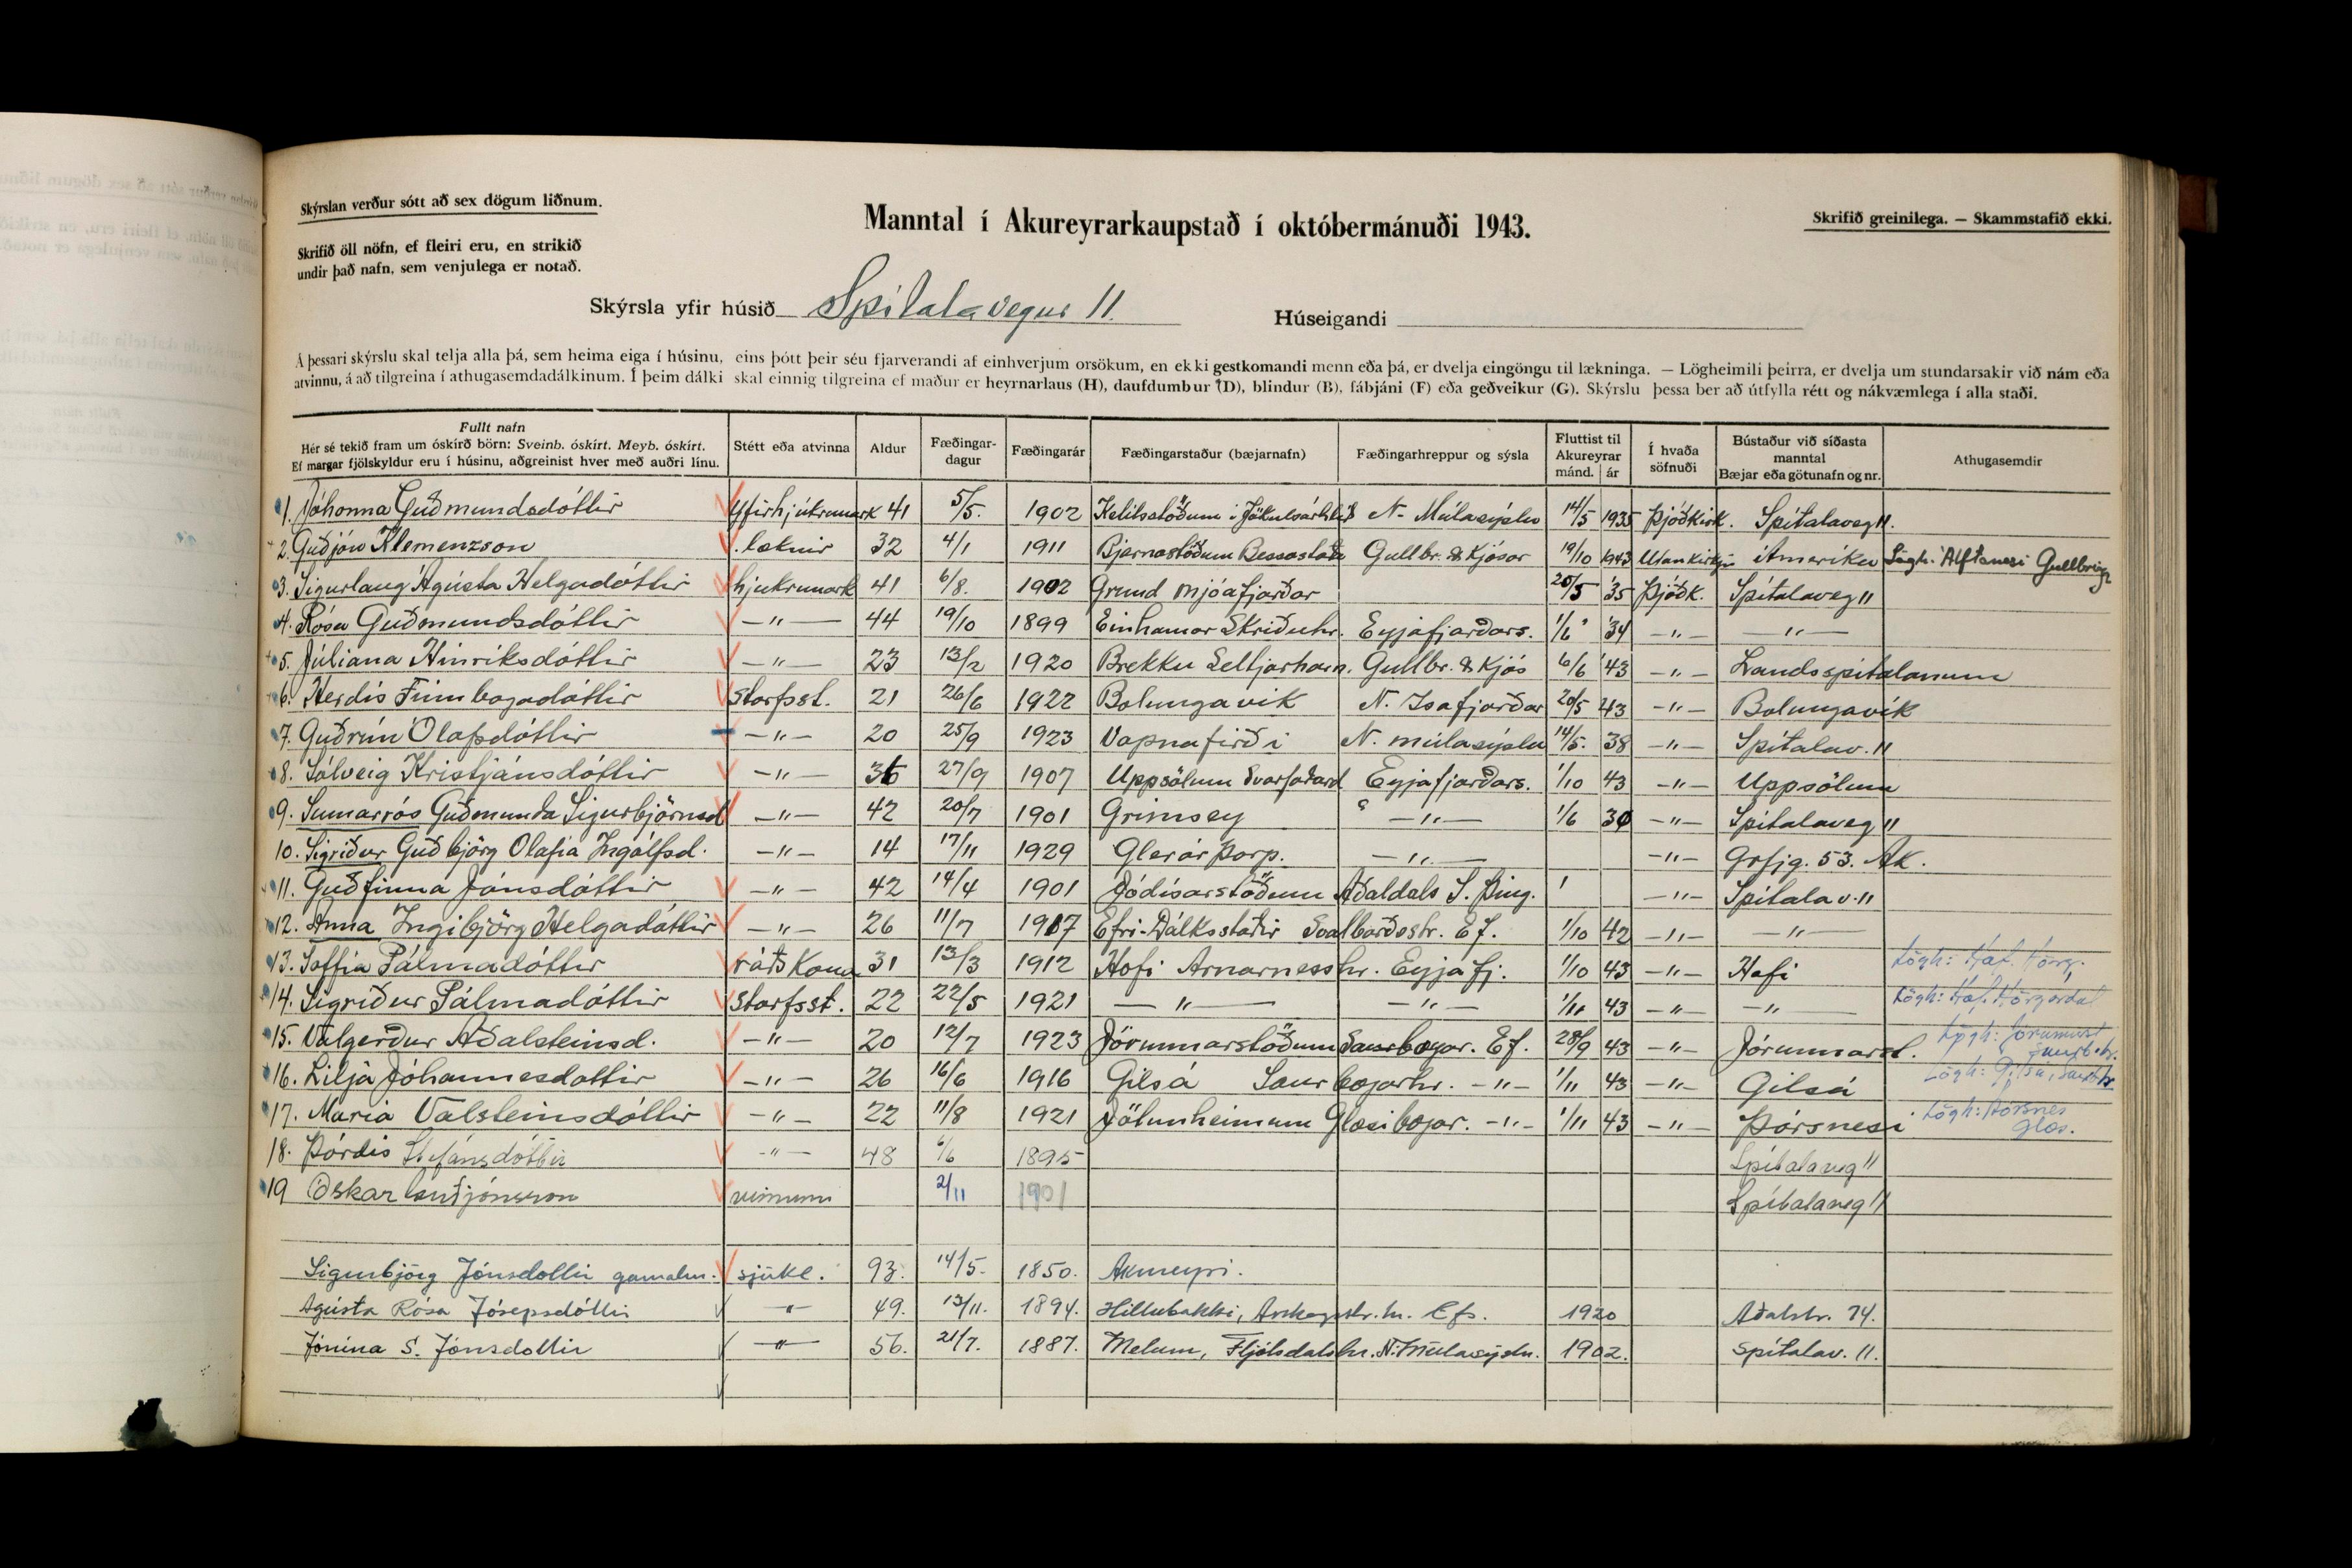 Skýrslan verður sótt að sex dögum liðnum.
Skrifið öll nöfn, ef fleiri eru, en strikið
undir það nafn, sem venjulega er notað.
Manntal í Akureyrarkaupstað í októbermánuði 1943.
Skrifið greinilega. — Skammstafið ekki.
Skýrsla yfir húsið Spítalavegur 11.
Húseigandi
Á þessari skýrslu skal telja alla þá, sem heima eiga í húsinu, eins þótt þeir séu fjarverandi af einhverjum orsökum, en ekki gestkomandi menn eða þá, er dvelja eingöngu til lækninga. — Lögheimili þeirra, er dvelja um stundarsakir við nám eða
atvinnu, á að tilgreina í athugasemdadálkinum. Í þeim dálki skal einnig tilgreina ef maður er heyrnarlaus (H), daufdumbur (D), blindur (B), fábjáni (F) eða geðveikur (G). Skýrslu þessa ber að útfylla rétt og nákvæmlega í alla staði.
Fullt nafn
Hér sé tekið fram um óskírð börn: Sveinb. óskírt. Meyb. óskírt.
Ef margar fjölskyldur eru í húsinu, aðgreinist hver með auðri línu.
Stétt eða atvinna
Aldur
Fæðingar-
dagur
Fæðingarár
Fæðingarstaður (bæjarnafn)
Fæðingarhreppur og sýsla
Fluttist til
Akureyrar
mánd. ár
Í hvaða
söfnuði
Bústaður við síðasta
manntal
Bæjar eða götunafn og nr.
Athugasemdir
1. Jóhanna Guðmundsdóttir yfirhjúkrunark 41 5/5. 1902 Ketilsstöðum i Jökulsárhlíð N- Múlasýslu 14/5 1935 Þjóðkirk. Spítalaveg 11.
2. Guðjón Klemenzson læknir 32 4/1 1911 Bjarnastöðum Bessastaða Gullbr. & Kjósar 19/10 1943 Utankirkju i Ameriku Lögh. Álftanesi Gullbring
3. Sigurlaug Ágústa Helgadóttir hjukrunark 41 6/8. 1902 Grund Mjóafjarðar 20/5 '35 Þjóðk. Spítalaveg 11
4. Rósa Guðmundsdóttir —"— 44 19/10 1899 Einhamar Skriðuhr. Eyjafjarðars. 1/6 '34 —"— —"—
5. Júliana Hinriksdóttir —"— 23 13/2 1920 Brekku Seltjarnarn. Gullbr. & Kjós 6/6 '43 —"— Landsspitalanum
6. Herdis Finnbogadóttir starfsst. 21 26/6 1922 Bolungavik N. Isafjarðar 20/5 43 —"— Bolungavík
7. Guðrún Ólafsdóttir —"— 20 25/9 1923 Vopnafirði N. múlasýslu 14/5. 38 —"— Spítalav. 11
8. Sólveig Kristjánsdóttir —"— 36 27/9 1907 Uppsölum Svarfaðard Eyjafjarðars. 1/10 43 —"— Uppsölum
9. Sumarrós Guðmunda Sigurbjörnsd —"— 42 20/7 1901 Grimsey —"— 1/6 30 —"— Spítalaveg 11
10. Sigríður Guðbjörg Olafia Ingólfsd. —"— 14 17/11 1929 Glerárþorp. —"— —"— Grfjg. 53. Ak.
11. Guðfinna Jónsdóttir —"— 42 14/4 1901 Jódísarstöðum Aðaldals S. Þing. —"— Spítalav. 11
12. Anna Ingibjörg Helgadóttir —"— 26 11/7 1917 Efri-Dálksstaðir Svalbarðsstr. Ef. 1/10 42 —"— —"—
13. Soffia Pálmadóttir ráðskona 31 13/3 1912 Hofi Arnarnesshr. Eyjafj. 1/10 43 —"— Hofi Lögh: Hof. Hörg.
14. Sigríður Pálmadóttir starfsst. 22 22/5 1921 —"— —"— 1/11 43 —"— —"— Lögh: Hof. Hörgárdal
15. Valgerður Aðalsteinsd. —"— 20 12/7 1923 Jórunnarstöðum Saurbæjar. Ef. 28/9 43 —"— Jórunnarst. Lögh: Jórunnarst Saurb.hr.
16. Lilja Jóhannesdottir —"— 26 16/6 1916 Gilsá Saurbæjarhr. —"— 1/11 43 —"— Gilsá Lögh: Gilsá, Saurbhr
17. Maria Valsteinsdóttir —"— 22 11/8 1921 Jötunheimum Glæsibæjar. —"— 1/11 43 —"— Þórsnesi Lögh: Þórsnes Glæs.
18. Þórdís Stefánsdóttir —"— 48 1895 Spítalaveg 11
19 Óskar Guðjónsson 2/11 1901 Spítalaveg 11
Sigurbjörg Jónsdottir gamalm. sjúkl. 93. 14/5. 1850. Akureyri.
Agústa Rósa Jósepsdóttir —"— 49. 13/11. 1894. Hillubakki, Arskogsstr. hr. Efs. 1920 Aðalstr. 74.
Jónína S. Jónsdottir —"— 56. 21/7. 1887. Melum, Fljótsdalshr. N.Múlasýslu. 1902. Spítalav. 11.